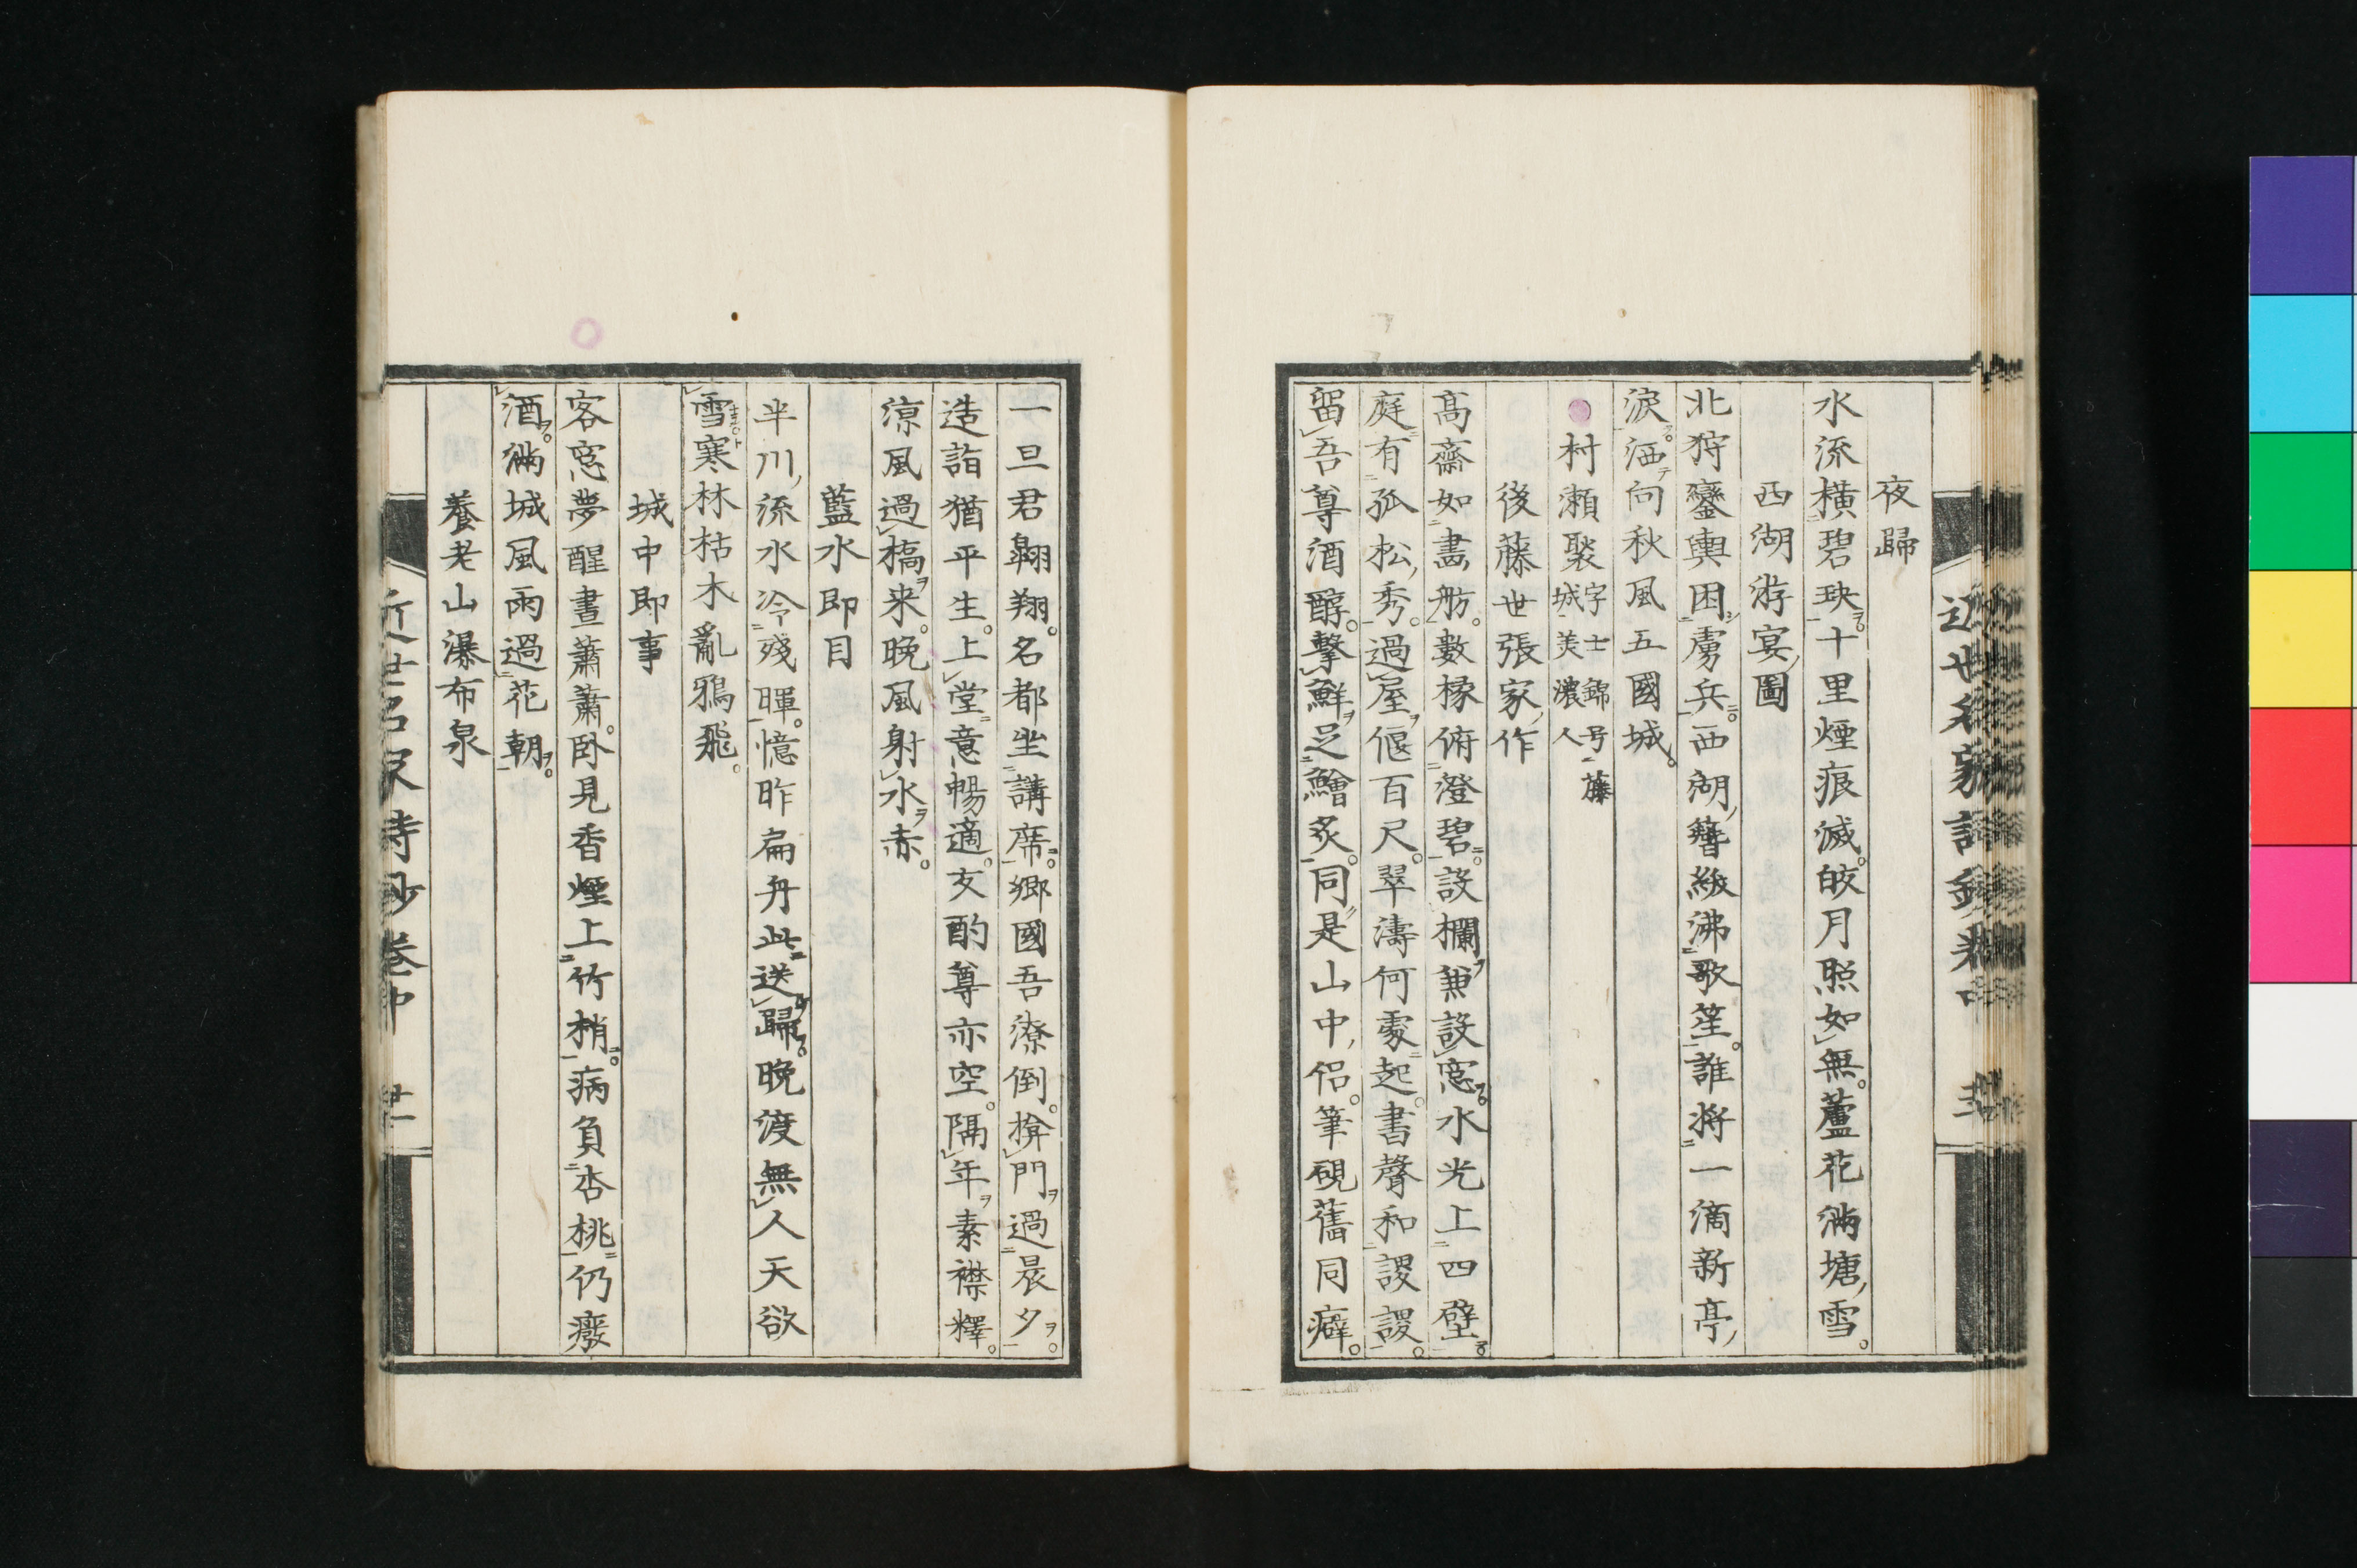 夜歸
水流橫碧玦十里煙痕滅皎月照如無蘆花滿塘雪
西湖游宴圖
北狩鑾輿困虜兵西湖簪紱沸歌笙誰將一滴新亭
淚洒向秋風五國城
村瀬褧字士錦号藤城美濃人
後藤世張家作
高齋如畵舫數椽俯澄碧設欄兼設窓水光上四壁
庭有孤松秀過屋偃百尺翠濤何處起書聲和謖謖
留吾尊酒醇擊鮮足鱠炙同是山中侶筆硯舊同癖
一旦君翺翔名都坐講席鄉國吾潦倒揜門過晨夕
造詣猶平生上堂意暢適交酌尊亦空隔年素襟釋
凉風過槁来晚風射水赤
藍水即目
半川流水冷殘暉憶昨扁舟此送歸晚渡無人天欲
雪寒林枯木亂鴉飛
城中即事
客窓夢醒晝蕭蕭卧見香煙上竹梢病負杏桃仍癈
酒滿城風雨過花朝
養老山瀑布泉
近世名家詩鈔卷中